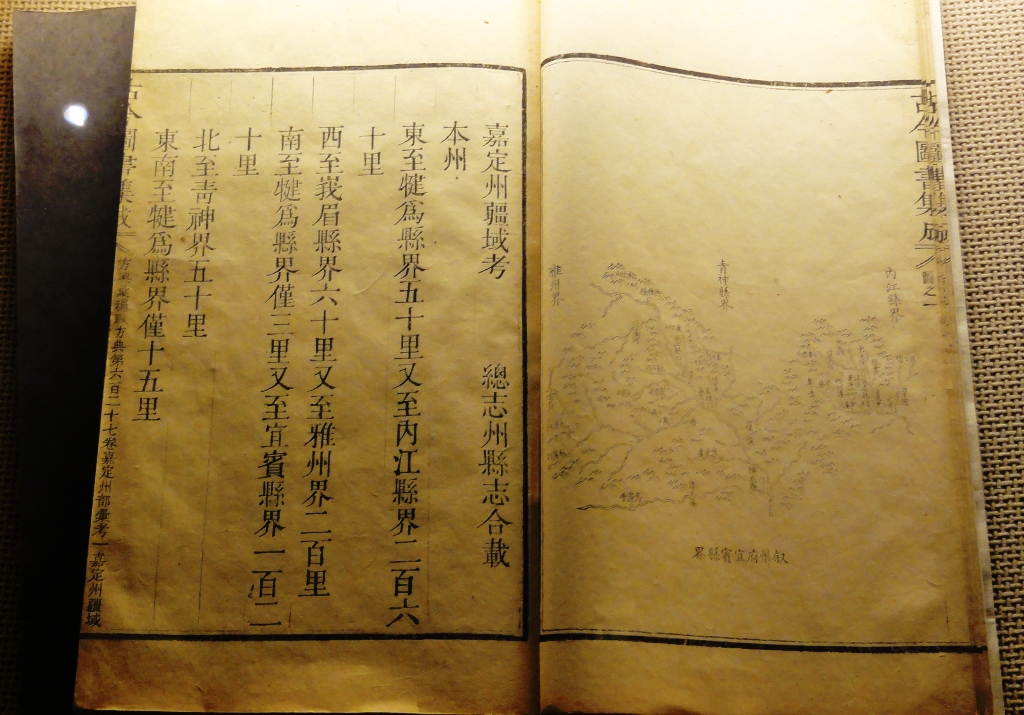 古今圖書集成
內江縣界
青神縣界
雅州界
叙州府宜賓縣界
嘉定州疆域考 總志州縣志合載
本州
東至犍爲縣界五十里又至內江縣界二百六
十里
西至峩眉縣界六十里又至雅州界二百里
南至犍爲縣界僅三里又至宜賓縣界一百二
十里
北至靑神界五十里
東南至犍爲縣界僅十五里
古今圖書集成
方輿彙編職方典第六百二十七卷嘉定州部彙考一嘉定州疆域